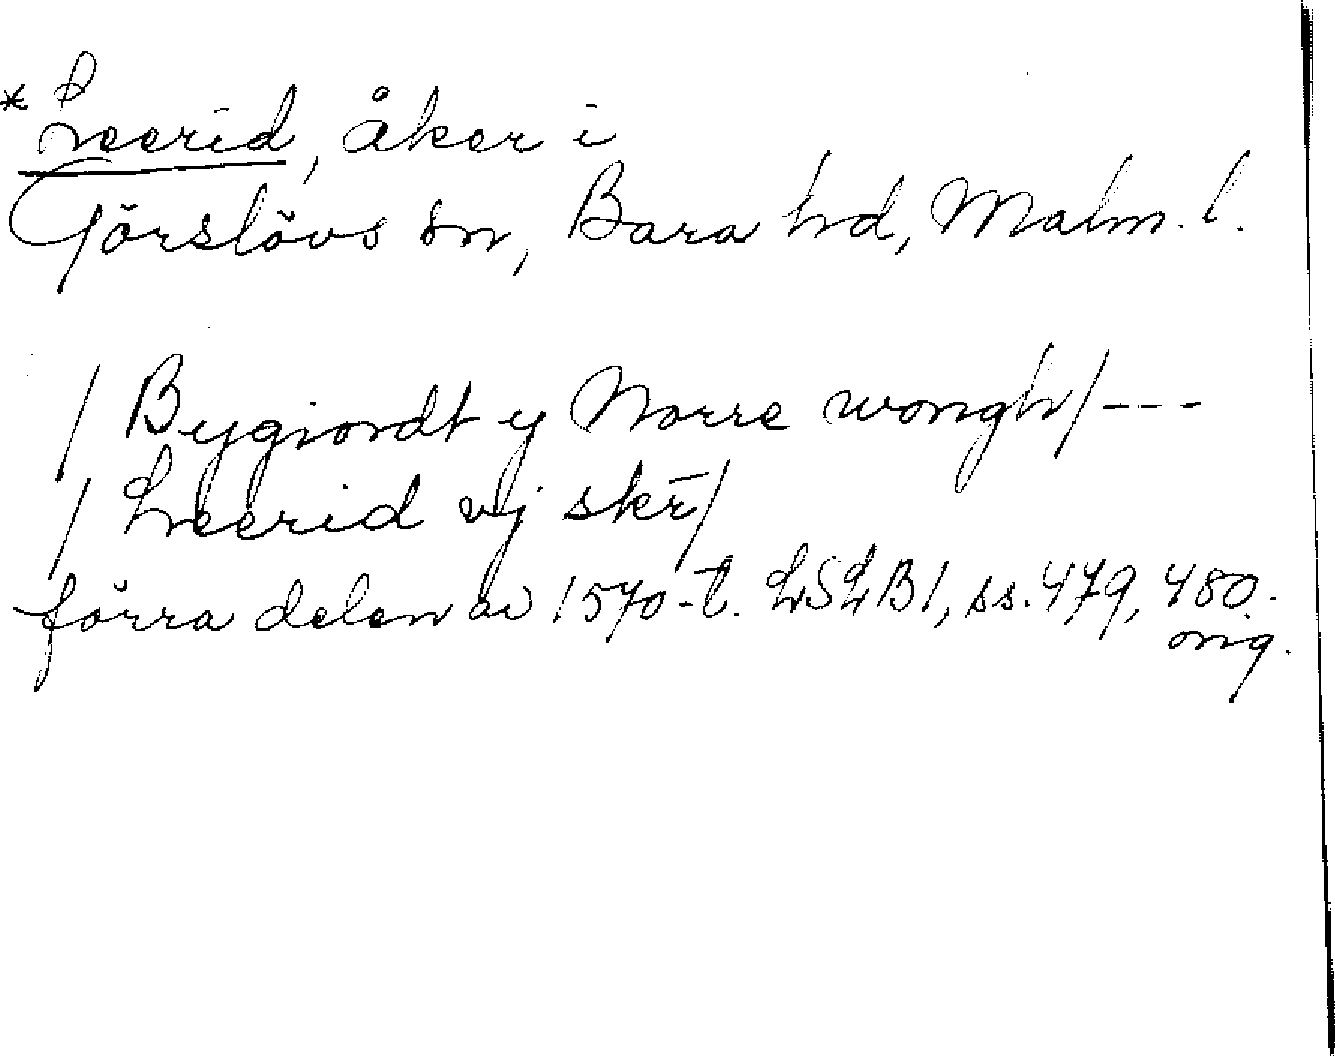 * Leerid, åker i
Görslövs sn, Bara hd, Malm. l.
/ Bygiordt y Norre wongh / ---
/ Leerid vij skr̄ /
förra delen av 1570-t. LSLB1, ss. 479, 480.
orig.